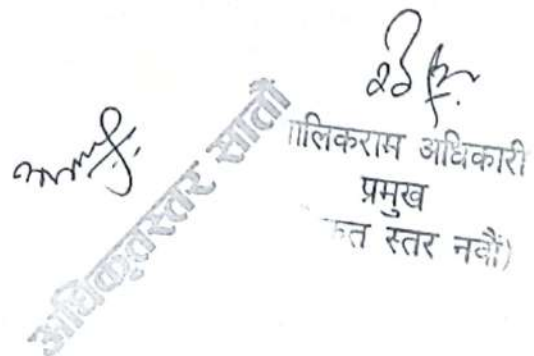 अधिकृतस्तर सातौं
ालिकराम अधिकारी
प्रमुख
कृत स्तर नवौं)